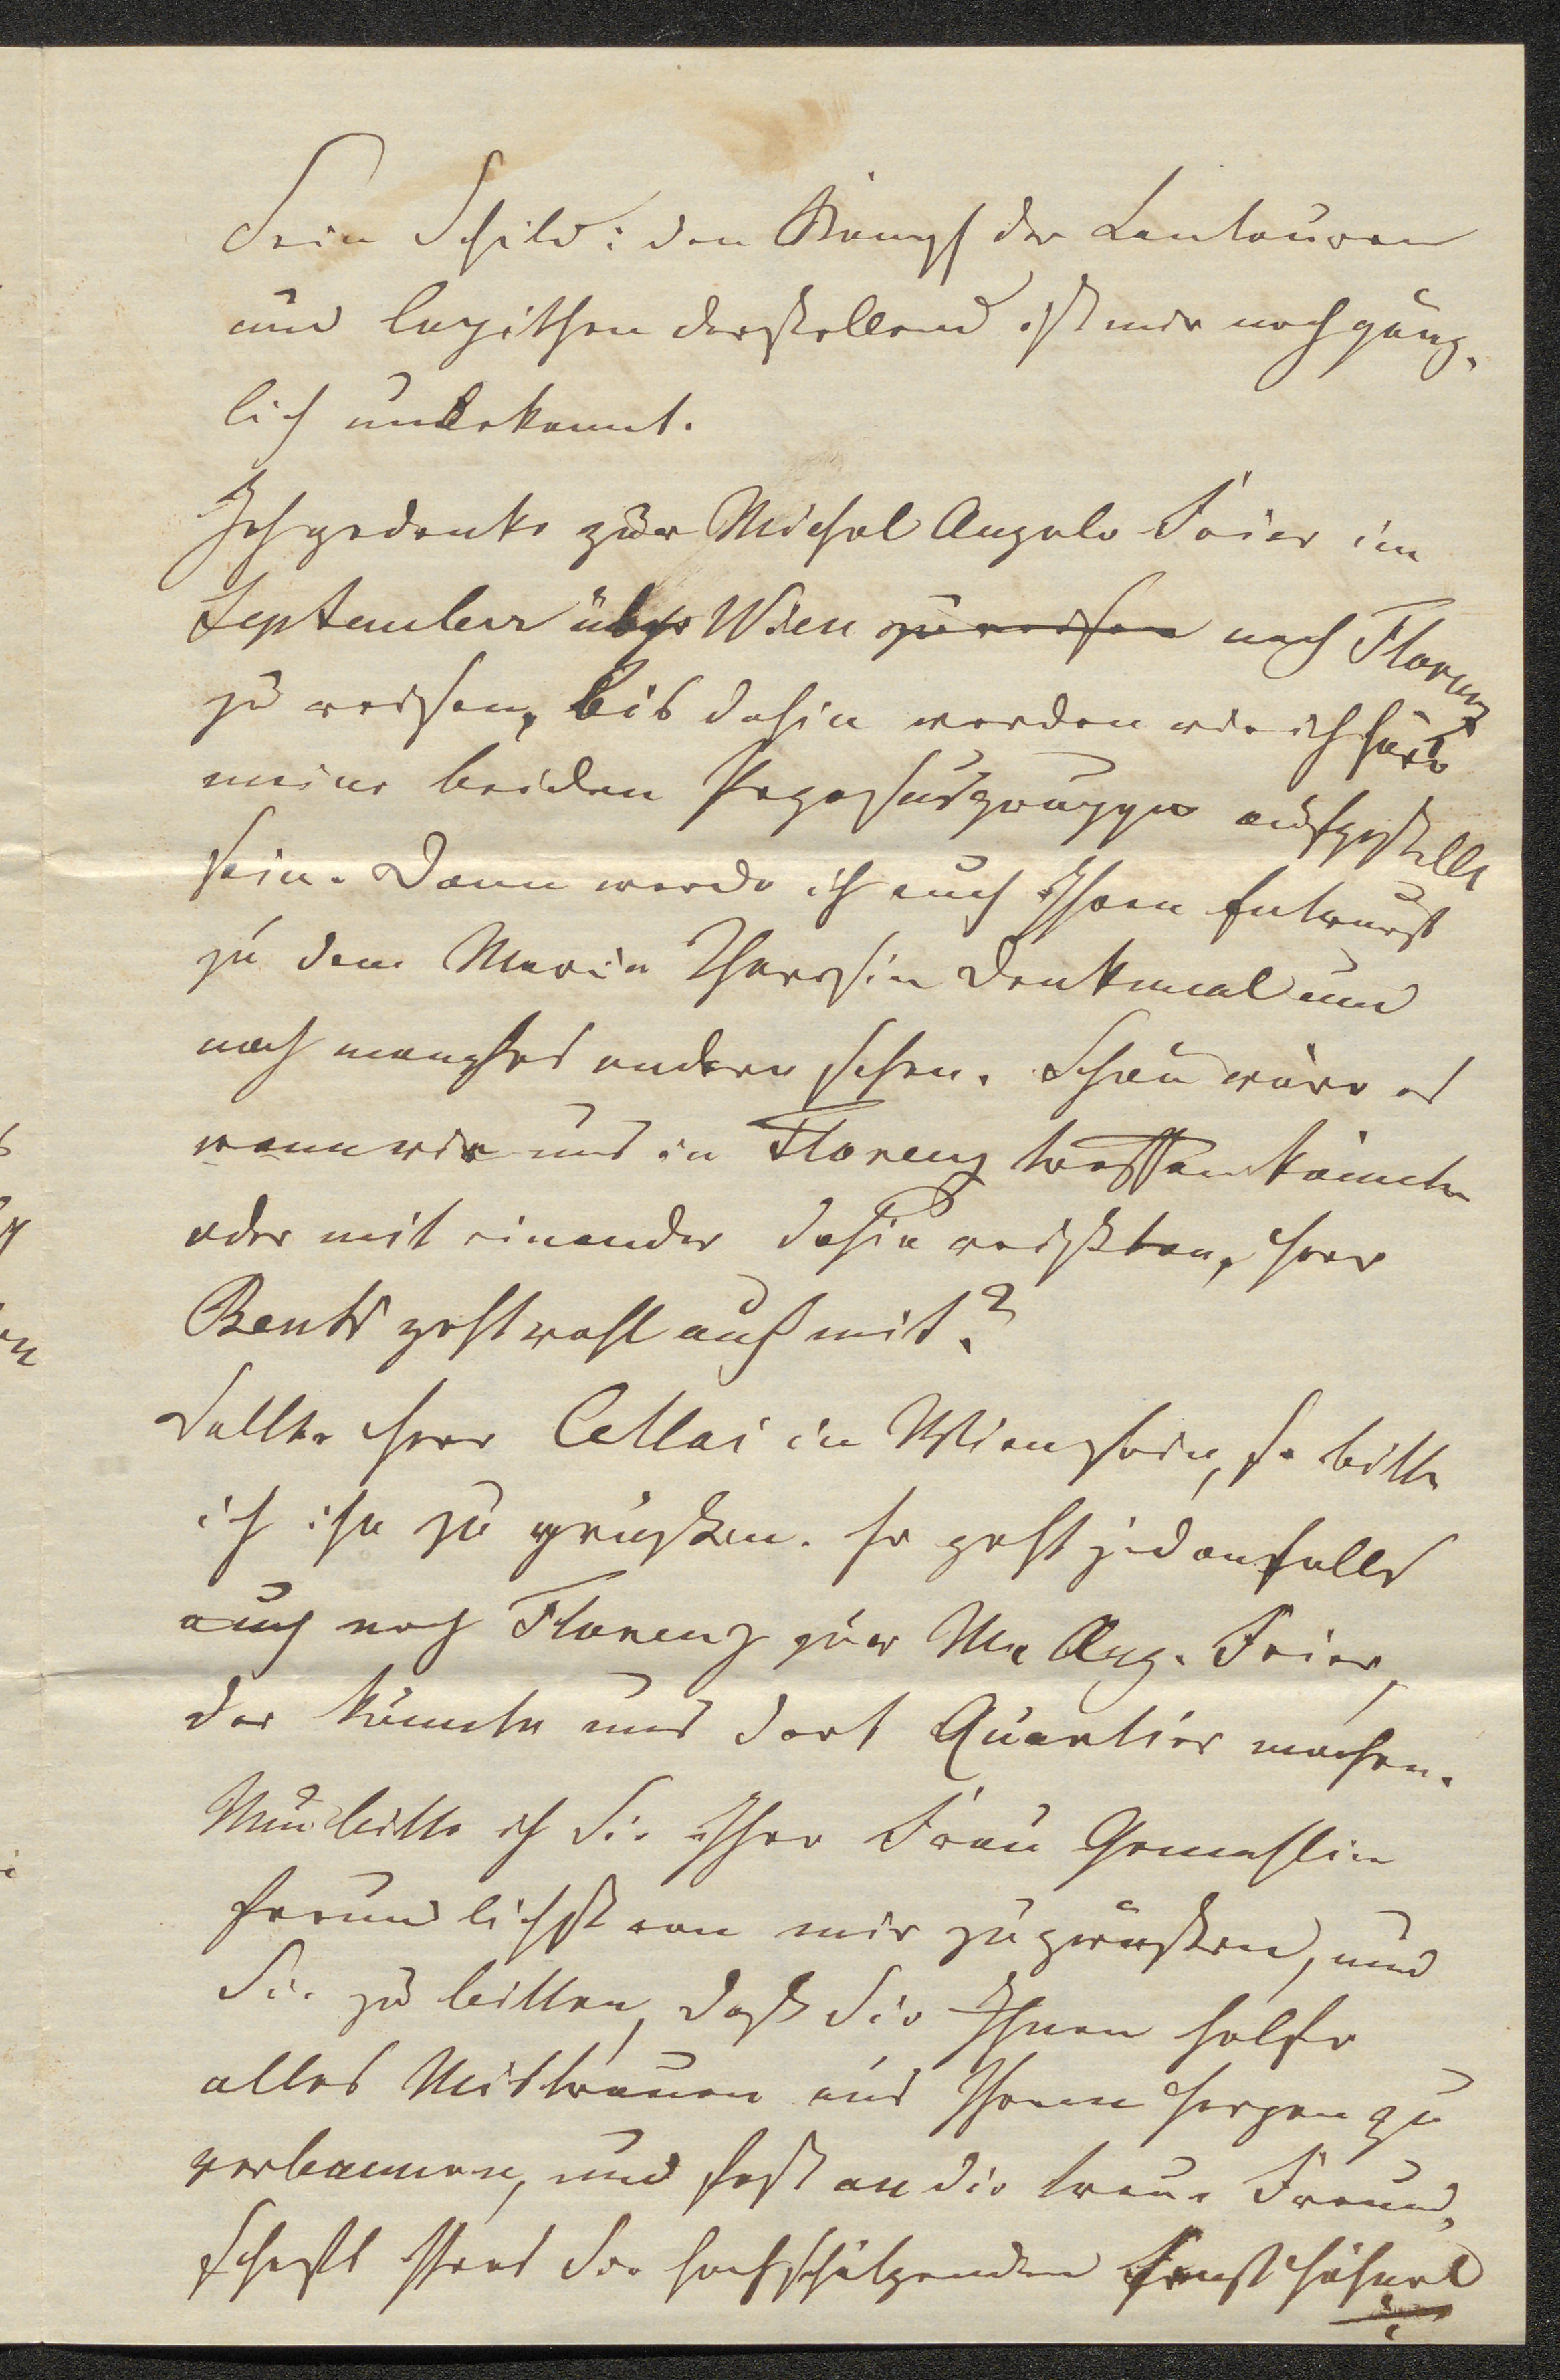 Sein Schild: den Kampf der Centauren
und Lapithen darstellend ist mir noch gänz-
lich unbekannt.
Ich gedenke zur Michel Angelo Feier im
September über Wien zu reisen nach Florenz
zu reisen, bis dahin werden wie ich höre
meine beiden Pegasusgruppen aufgestellt
sein. Dann werde ich auch Ihren Entwurf
zu dem Maria Theresien Denkmal und
noch manches andere sehen. Schön wäre es
wenn wir uns in Florenz treffen könnten
oder mit einander dahin reisten, Herr
geht wohl auch mit?
Sollte Herr Cellai in Wien sein, so bitte
ich ihn zu grüßen. Er geht jedenfalls
auch nach Florenz zur M. Ang. Feier,
der könnte uns dort Quartier machen.
Nun bitte ich Sie Ihre Frau Gemahlin
freundlichst von mir zu grüßen, und
Sie zu bitten, daß Sie Ihnen helfe
alles Mistrauen aus Ihrem Herzen zu
verbannen, und fest an die treue Freund-
schaft Ihres Sie hochschätzenden Ernst Hähnel